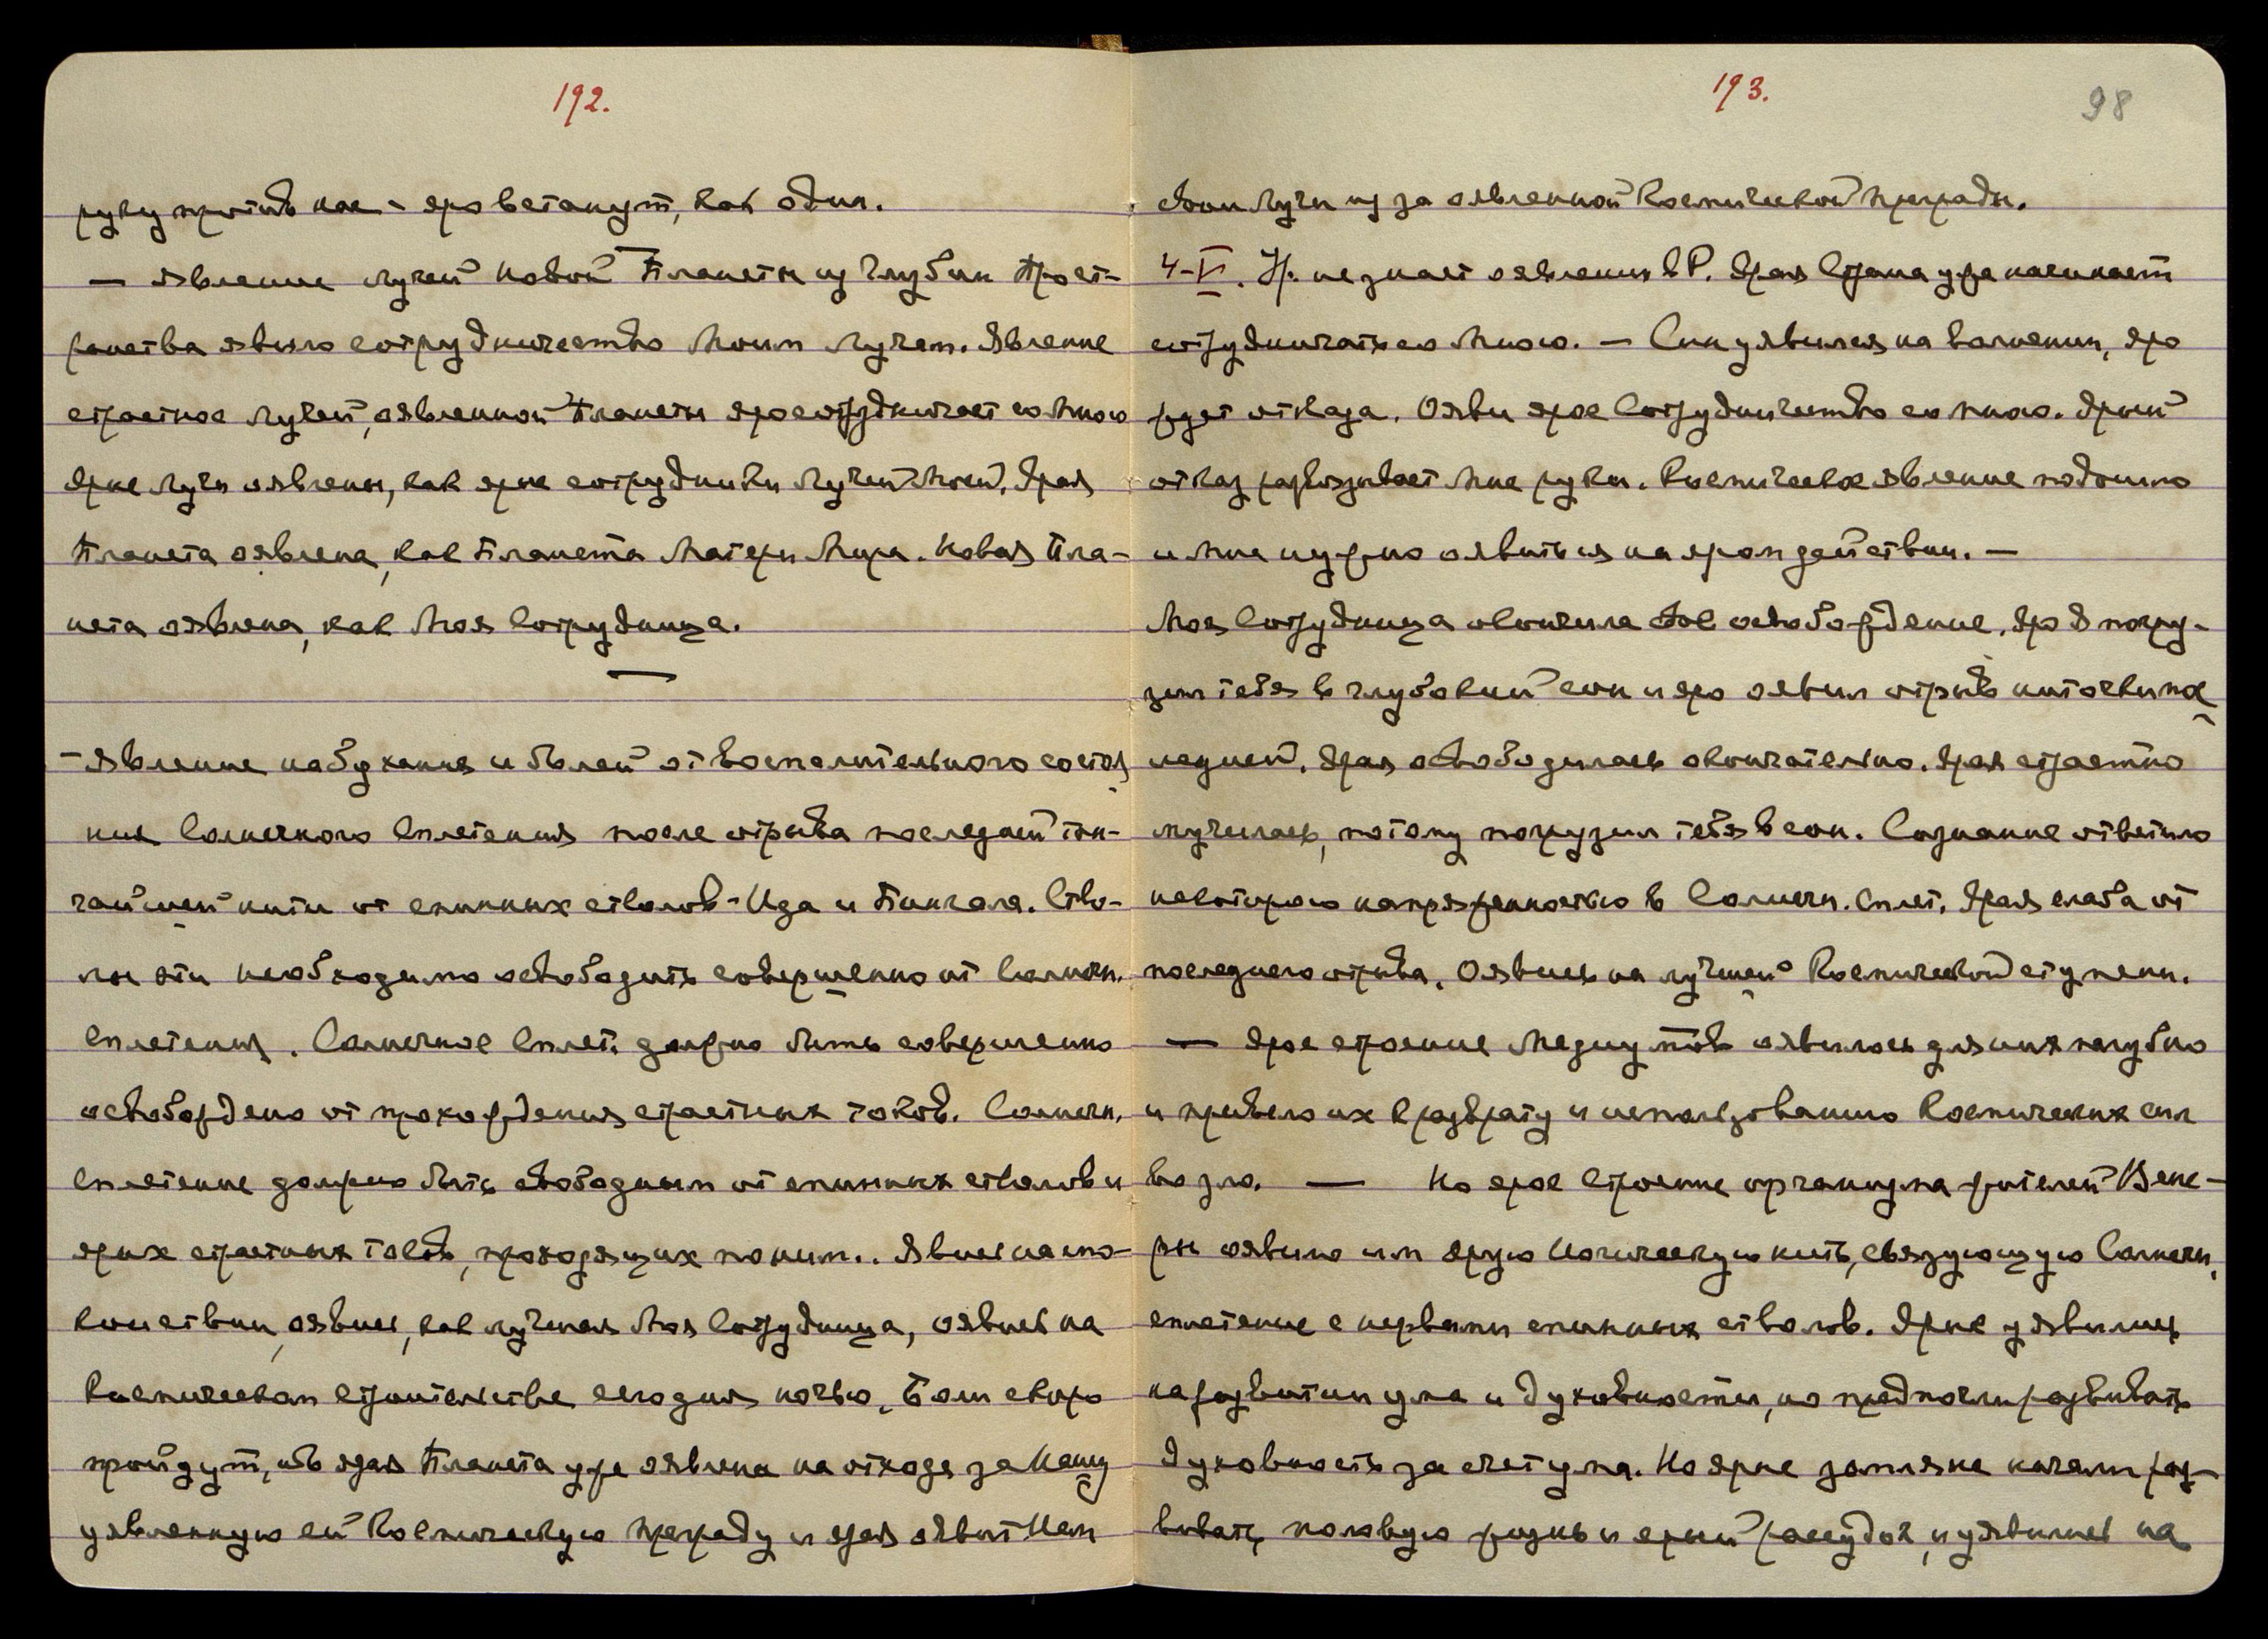 192.
руку против нас - яро встанут, как один.
— Явление лучей новой Планеты из глубин Прост-
ранства явило сотрудничество Моим Лучам. Явление
страстное лучей, оявленной Планеты яро сотрудничает со Мною
Ярые лучи оявлены, как ярые сотрудники Лучей Моей. Ярая
Планета оявлена, как Планета Матери Мира. Новая Пла-
нета оявлена, как Моя Сотрудница.
—
- Явление набухания и болей от воспалительного состоя
ния Солнечного Сплетения после отрыва последней тон-
чайшей нити от спинных стволов - Ида и Пингала. Ство-
лы эти необходимо освободить совершенно от Солнечн.
Сплетения. Солнечное Сплет. должно быть совершенно
освобождено от прохождения страстных токов. Солнечн.
Сплетение должно быть свободным от спинных стволов и
ярых страстных токов, проходящих по ним.. Явись на спо-
койствии, оявись, как лучшая Моя Сотрудница, оявись на
Космическом строительстве сегодня ночью. Боли скоро
пройдут, ибо ярая Планета уже оявлена на отходе за Нашу
уявленную ей Космическую преграду и ярая оявит Нам
193.
98
свои Лучи из за оявленной Космической преграды.
4-VI. Ур. не знает оявления в Р. Ярая Страна уже начинает
сотрудничать со Мною. — Син уявился на волнении, яро
ждет отказа. Ояви ярое Сотрудничество со мною. Ярый
отказ развязывает Мне руки. Космическое явление подошло
и Мне нужно оявиться на яром действии. —
Моя Сотрудница окончила свое освобождение. Яро Я погру-
зил тебя в глубокий сон и яро оявил отрыв ниточки пос
ледней. Ярая освободилась окончательно. Ярая страстно
мучилась, потому погрузил тебя в сон. Сознание ответило
некоторою напряженностью в Солнечн. Сплет. Ярая слаба от
последнего отрыва. Оявись на лучшей Космической ступени.
— Ярое строение Медиумов оявилось для них пагубно
и привело их к разврату и использованию Космических сил
во зло. — Но ярое строение организма жителей Вене-
ры оявило им ярую Космическую нить, связующую Солнечн.
сплетение с нервами спинных стволов. Ярые уявились
на развитии ума и духовности, но предпочли развивать
духовность за счет ума. Но ярые земляне начали раз-
вивать половую жизнь и ярый рассудок, и уявились на